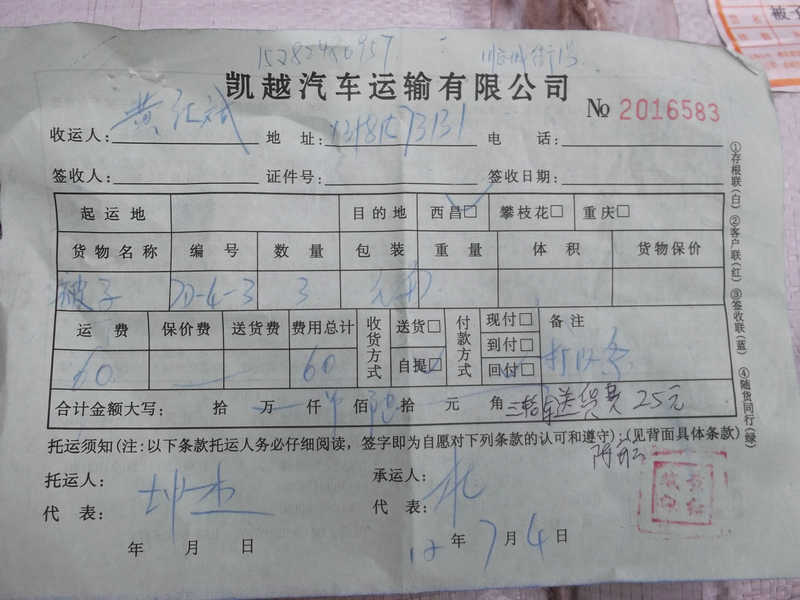 凯越汽车运输有限公司
№ 2016583
收运人: 地 址: 电 话:
签收人: 证件号: 签收日期:
起运地 目的地 西昌□ 攀枝花□ 重庆□
货物名称 编 号 数 量 包 装 重 量 体 积 货物保价
被子 20-4-3 3
运 费 保价费 送货费 费用总计 收货方式 送货□ 自提□ 付款方式 现付□ 到付□ 回付□ 备 注
60 60 打收条
合计金额大写: 拾 万 仟 佰 陆 拾 元 角 三轮车送货费 25元
托运须知(注:以下条款托运人务必仔细阅读,签字即为自愿对下列条款的认可和遵守):(见背面具体条款)
托运人: 承运人:
代 表: 代 表:
年 月 日 12 年 7 月 4 日
①存根联(白) ②客户联(红) ③签收联(蓝) ④随货同行(绿)
被子